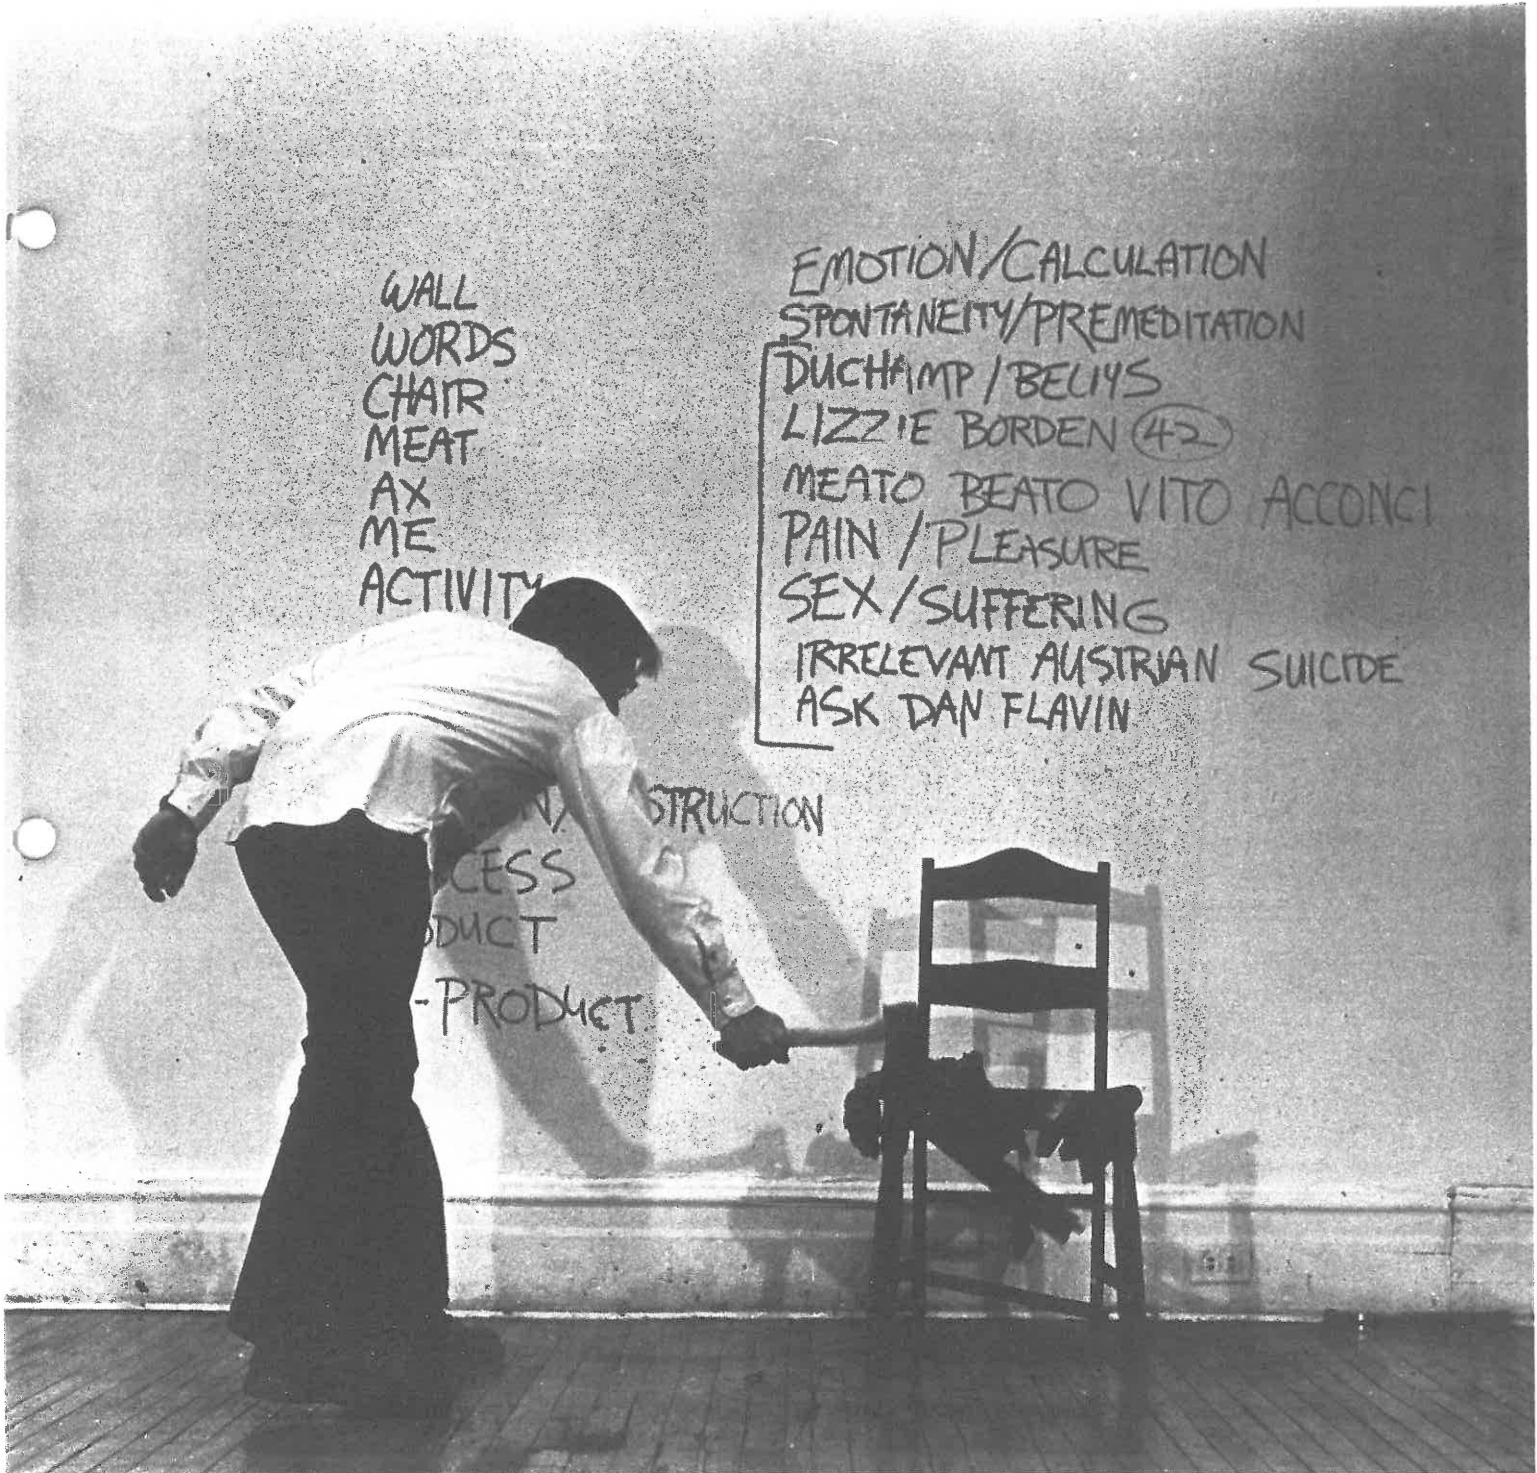 WALL
WORDS
CHAIR
MEAT
AX
ME
ACTIVITY
STRUCTION
CESS
DUCT
-PRODUCT
EMOTION/CALCULATION
SPONTANEITY/PREMEDITATION
DUCHAMP/BEUYS
LIZZIE BORDEN 42
MEATO BEATO VITO ACCONCI
PAIN/PLEASURE
SEX/SUFFERING
IRRELEVANT AUSTRIAN SUICIDE
ASK DAN FLAVIN